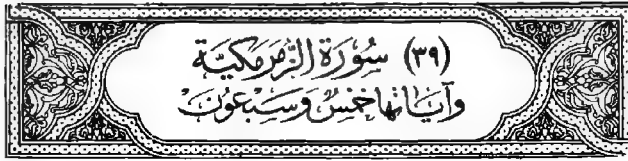 (٣٩) سُورَة الزُّمَر مَكيَّة
وَآيَاتها خَمْسٌ وَسَبْعُونَ